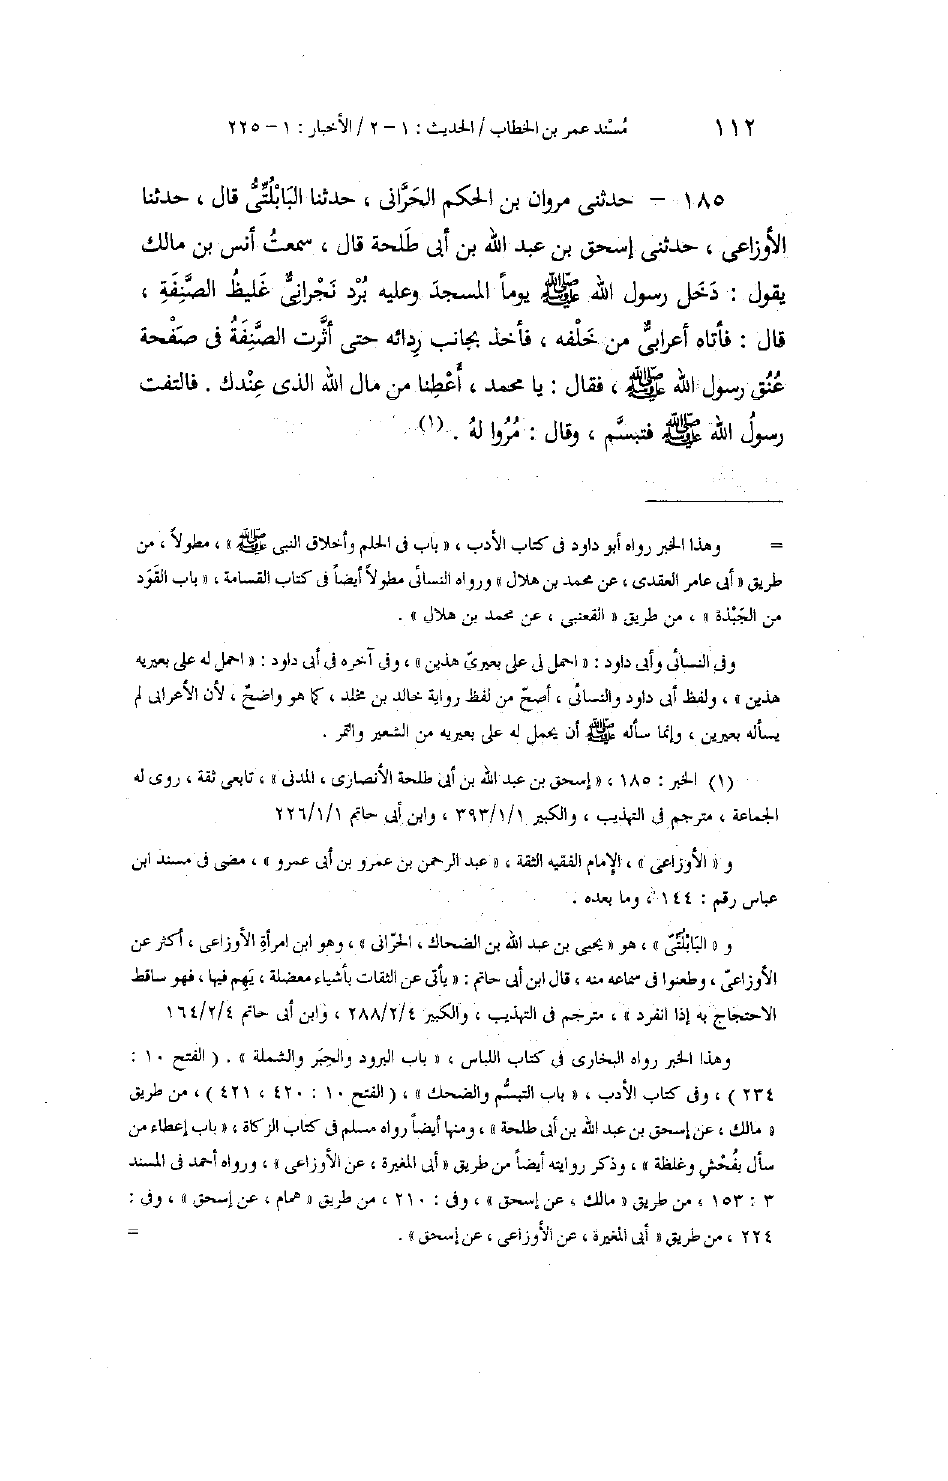 ١١٢ مُسْند عمر بن الخطاب / الحديث : ١ - ٢ / الأخبار : ١ - ٢٢٥
١٨٥ - حدثنى مروان بن الحكم الحَرَّانى ، حدثنا البَابْلُتِّىُّ قال ، حدثنا
الأوزاعى ، حدثنى إسحق بن عبد الله بن أبى طَلحة قال ، سمعتُ أنس بن مالك
يقول : دَخَل رسول الله ﷺ يوماً المسجدَ وعليه بُرْد نَجْرانىٌّ غَليظُ الصَّنِفَةِ ،
قال : فأتاه أعرابىٌّ من خَلْفه ، فأخذ بجانب رِدائه حتى أثَّرت الصَّنِفَةُ فى صَفْحة
عُنُق رسول الله ﷺ ، فقال : يا محمد ، أَعْطِنا من مال الله الذى عِنْدك . فالتفت
رسولُ الله ﷺ فتبسَّم ، وقال : مُرُوا لهُ . (١)
= وهذا الخبر رواه أبو داود فى كتاب الأدب ، « باب فى الحلم وأخلاق النبى ﷺ » ، مطولاً ، من
طريق « أبى عامر العقدى ، عن محمد بن هلال » ورواه النسائى مطولاً أيضاً فى كتاب القسامة ، « باب القَوَد
من الجَبْذة » ، من طريق « القعنبى ، عن محمد بن هلال » .
وفى النسائى وأبى داود : « احمل لى على بعيرىّ هذين » ، وفى آخره فى أبى داود : « احمل له على بعيريه
هذين » ، ولفظ أبى داود والنسائى ، أصحّ من لفظ رواية خالد بن مخلد ، كما هو واضحٌ ، لأن الأعرابى لم
يسأله بعيرين ، وإنما سأله ﷺ أن يحمل له على بعيريه من الشعير والتمر .
(١) الخبر : ١٨٥ ، « إسحق بن عبد الله بن أبى طلحة الأنصارى ، المدنى » ، تابعى ثقة ، روى له
الجماعة ، مترجم فى التهذيب ، والكبير ١/١/٣٩٣ ، وابن أبى حاتم ١/١/٢٢٦
و « الأوزاعى » ، الإمام الفقيه الثقة ، « عبد الرحمن بن عمرو بن أبى عمرو » ، مضى فى مسند ابن
عباس رقم : ١٤٤ ، وما بعده .
و « البَابْلُتِّىّ » ، هو « يحيى بن عبد الله بن الضحاك ، الحرّانى » ، وهو ابن امرأة الأوزاعى ، أكثر عن
الأوزاعىّ ، وطعنوا فى سماعه منه ، قال ابن أبى حاتم : « يأتى عن الثقات بأشياء معضلة ، يَهِم فيها ، فهو ساقط
الاحتجاج به إذا انفرد » ، مترجم فى التهذيب ، والكبير ٤/٢/٢٨٨ ، وابن أبى حاتم ٤/٢/١٦٤
وهذا الخبر رواه البخارى فى كتاب اللباس ، « باب البرود والحِبَر والشملة » . ( الفتح ١٠ :
٢٣٤ ) ، وفى كتاب الأدب ، « باب التبسُّم والضحك » ، ( الفتح ١٠ : ٤٢٠ ، ٤٢١ ) ، من طريق
« مالك ، عن إسحق بن عبد الله بن أبى طلحة » ، ومنها أيضاً رواه مسلم فى كتاب الزكاة ، « باب إعطاء من
سأل بفُحْشٍ وغلظة » ، وذكر روايته أيضاً من طريق « أبى المغيرة ، عن الأوزاعى » ، ورواه أحمد فى المسند
٣ : ١٥٣ ، من طريق « مالك ، عن إسحق » ، وفى : ٢١٠ ، من طريق « همام ، عن إسحق » ، وفى :
٢٢٤ ، من طريق « أبى المغيرة ، عن الأوزاعى ، عن إسحق » . =